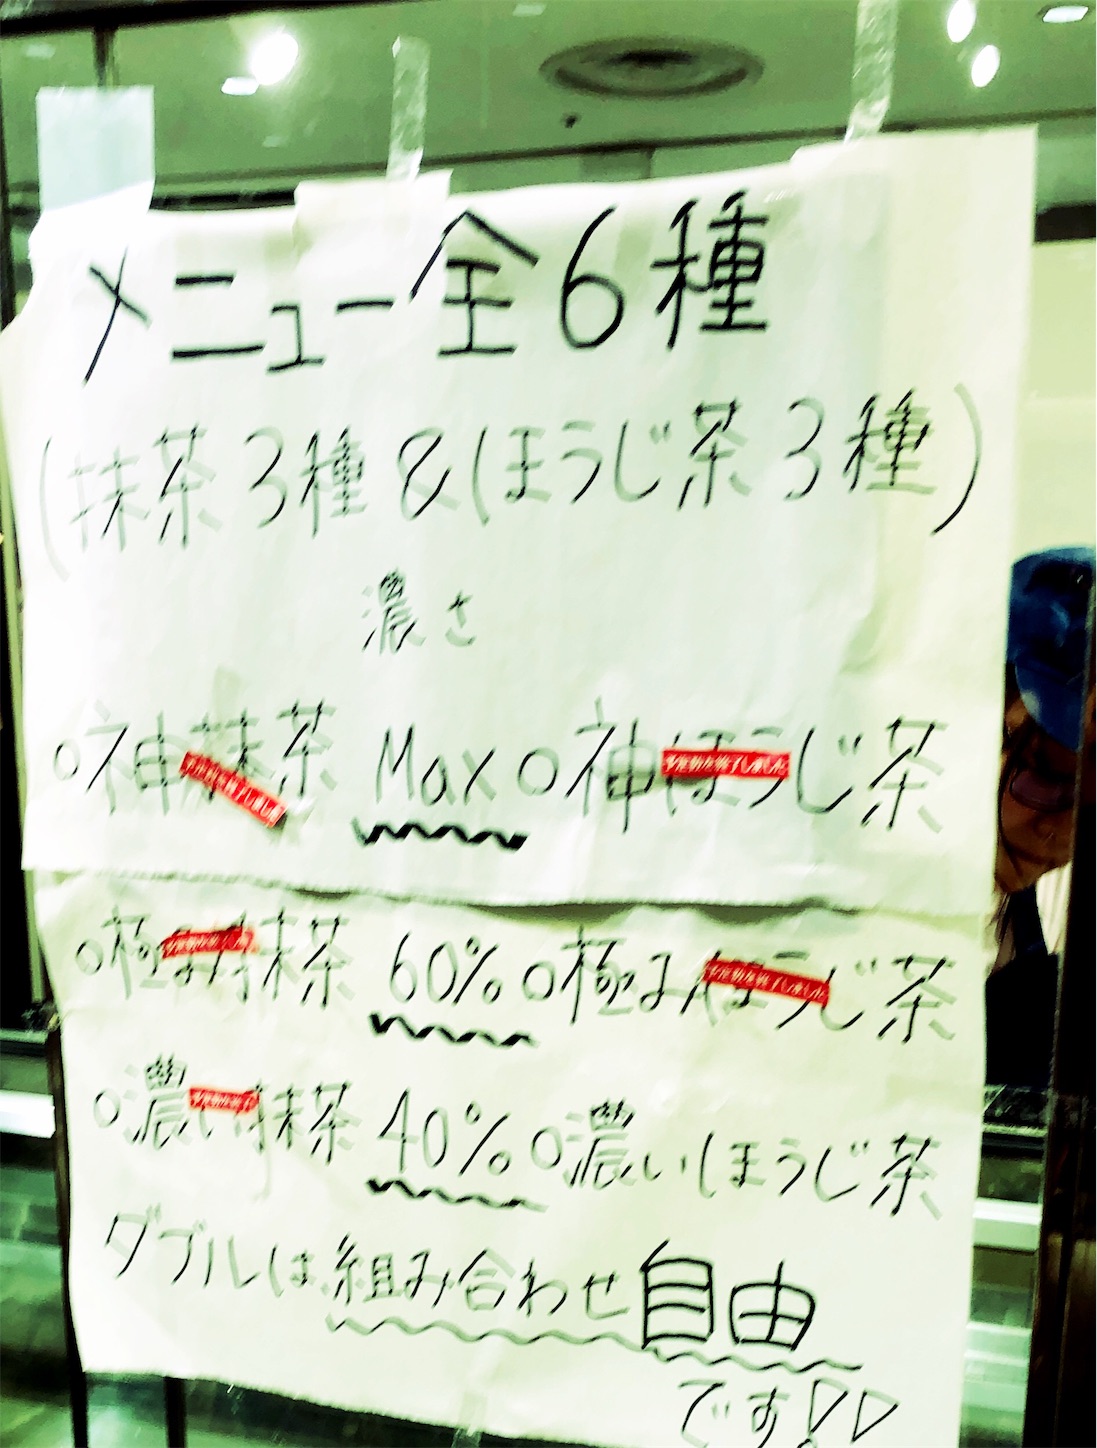 メニュー全6種
(抹茶3種&ほうじ茶3種)
濃さ
○神抹茶 Max ○神ほうじ茶
予定数を終了しました
予定数を終了しました
○極み抹茶 60% ○極みほうじ茶
予定数を終了しました
○濃い抹茶 40% ○濃いほうじ茶
予定数を終了
ダブルは組み合わせ自由
です!!